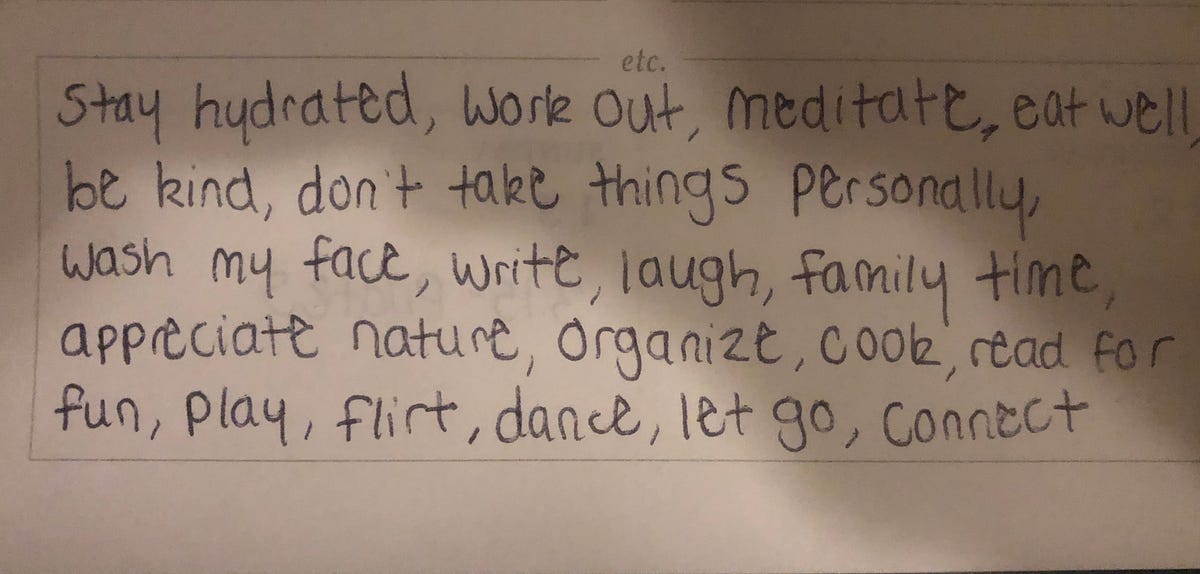 etc.
Stay hydrated, work out, meditate, eat well,
be kind, don't take things personally,
wash my face, write, laugh, family time,
appreciate nature, organize, cook, read for
fun, play, flirt, dance, let go, connect